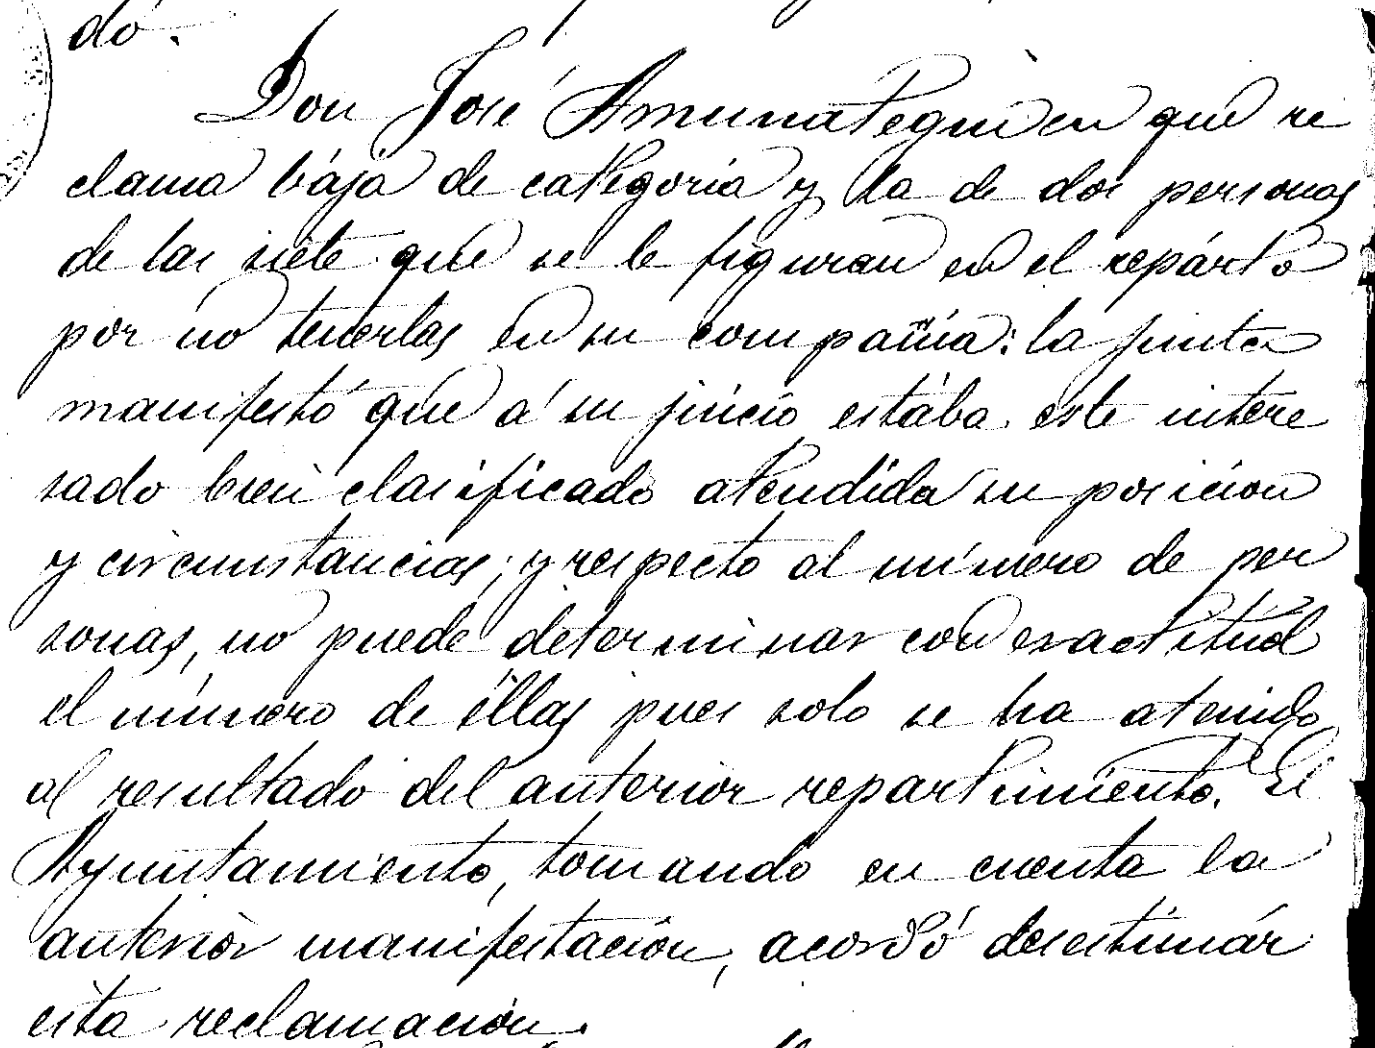 do.
Don José Amunategui en que re
clama bája de categoria y la de dos personas
de las siete que se le figuran en el repárto
por no tenerlas en su compañia: la junta
manifestó que á su juicio estába este intere
sado bien clasificado atendida su posicion
y circunstancias; y respecto al número de per
sonas, no puede determinar con exactitúd
el número de éllas pues solo se ha atenido
al resultado del anterior repartimiento. El
Ayuntamiento, tomando en cuenta la
anterior manifestación, acordó desestimár
esta reclamación.